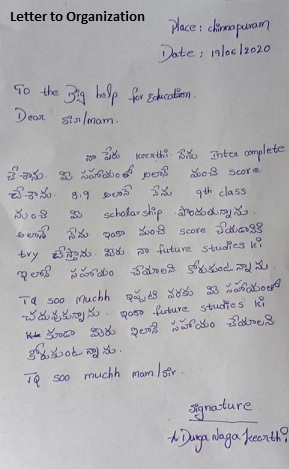 Letter to Organization
Place : chinnapuram
Date : 19/06/2020
To the Big help for Education.
Dear sir/mam.
నా పేరు keerthi నేను Inter complete
చేశాను. మీ సహాయంతో అలానే మంచి score
చేశాను. 8.9 అలానే నేను 9th class
నుంచి మీ scholarship పొందుతున్నాను.
అలానే నేను ఇంకా మంచి score చేయడానికి
try చేస్తాను. మీరు నా future studies ki
ఇలానే సహాయం చేయాలని కోరుకుంటున్నాను.
TQ soo muchh ఇప్పటి వరకు మీ సహాయంతో
చదువుకున్నాను. ఇంకా future studies ki
కూడా మీరు ఇలానే సహాయం చేయాలని
కోరుకుంటున్నాను.
TQ soo muchh mam/sir.
signature
A Durga Naga keerthi